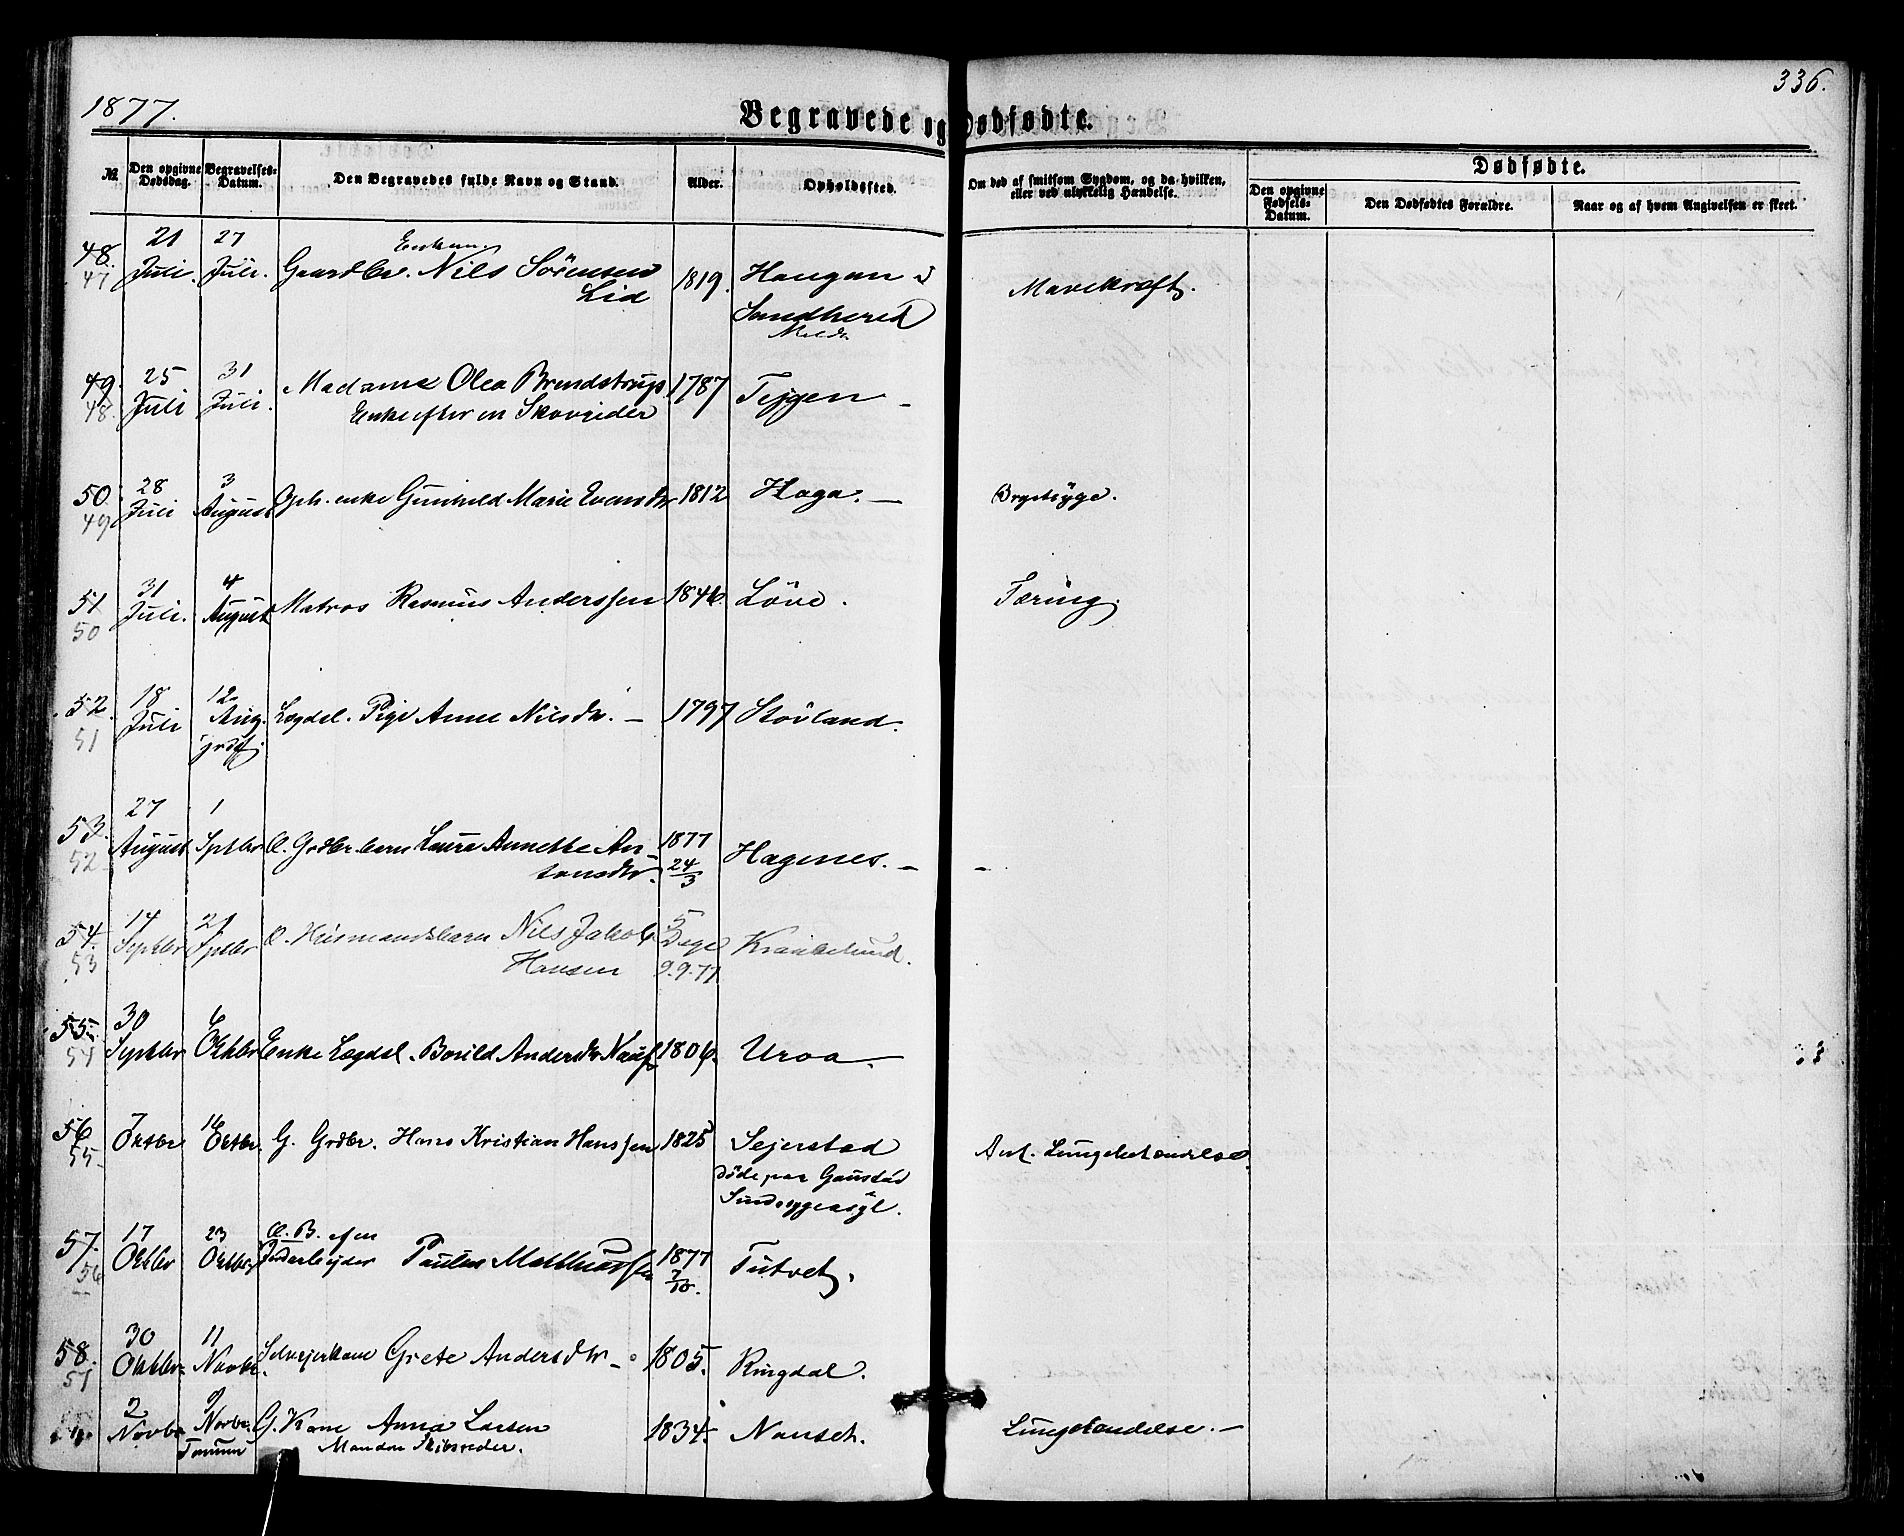 1877.
336.
Begravede og Dødfødte.
№
Den opgivne Dødsdag.
Begravelses-Datum.
Den Begravedes fulde Navn og Stand.
Alder.
Opholdssted.
Om død af smitsom Sygdom, og da hvilken, eller ved ulykkelig Hændelse.
Dødfødte.
Den opgivne Fødsels-Datum.
Den Dødfødtes Forældre.
Naar og af hvem Angivelsen er skeet.
48. 21 Juli. 27 Juli. Enkem. Gaardbr. Nils Sörensen 1819. Haugan i Mavekræft.
47 Lid Sandherred
49. 25 Juli 31 Juli. Madame Olea Brendstrups 1787 Tejgen —
48. Enke efter en Skovrider
50. 28 Juli 3 August Oph. enke Gunhild Marie Evensdtr 1812 Haga. — Brystsyge.
49
51 31 Juli. 4 August Matros Rasmus Anderssen 1846. Löve. Tæring.
50
52. 18 Juli 12 Aug. Lægdsl. Pige Anne Nilsdtr. — 1797 Stövland.
51 jrdf.
53. 27 August 1 Sptbr Grdbr. barn Laura Annette An- 1877 Hagenes. — —
52 tonsdtr. 24/3
54. 14 Septbr 21 Sptbr Husmandsbarn Nils Jakob 5 Dage
53 Hansen 9.9.77.
55. 30 Septbr 6 Oktbr Enke Lægdsl. Borild Andersdtr 1806. Uroa —
54
56 7 Oktbr 16 Oktbr. G. Grdbr. Hans Kristian Hanssen 1825 Sejerstad Ant. Lungebetændelse.
55 døde paa Gaustad
Sindssygeasyl.
57. 17 Oktbr 23 Oktbr. B. af en Jordarbejder 1877 Tutvet.
56 7/10.
58. 30 Oktbr. 11 Novbr. Selvejerkone Grete Andersdtr — 1805. Ringdal.
57
2 Novbr 9 Novbr. G. Kone Anna Larsen 1834. Nanset. Lungebetændelse. —
Tanum Manden Skibsreder.